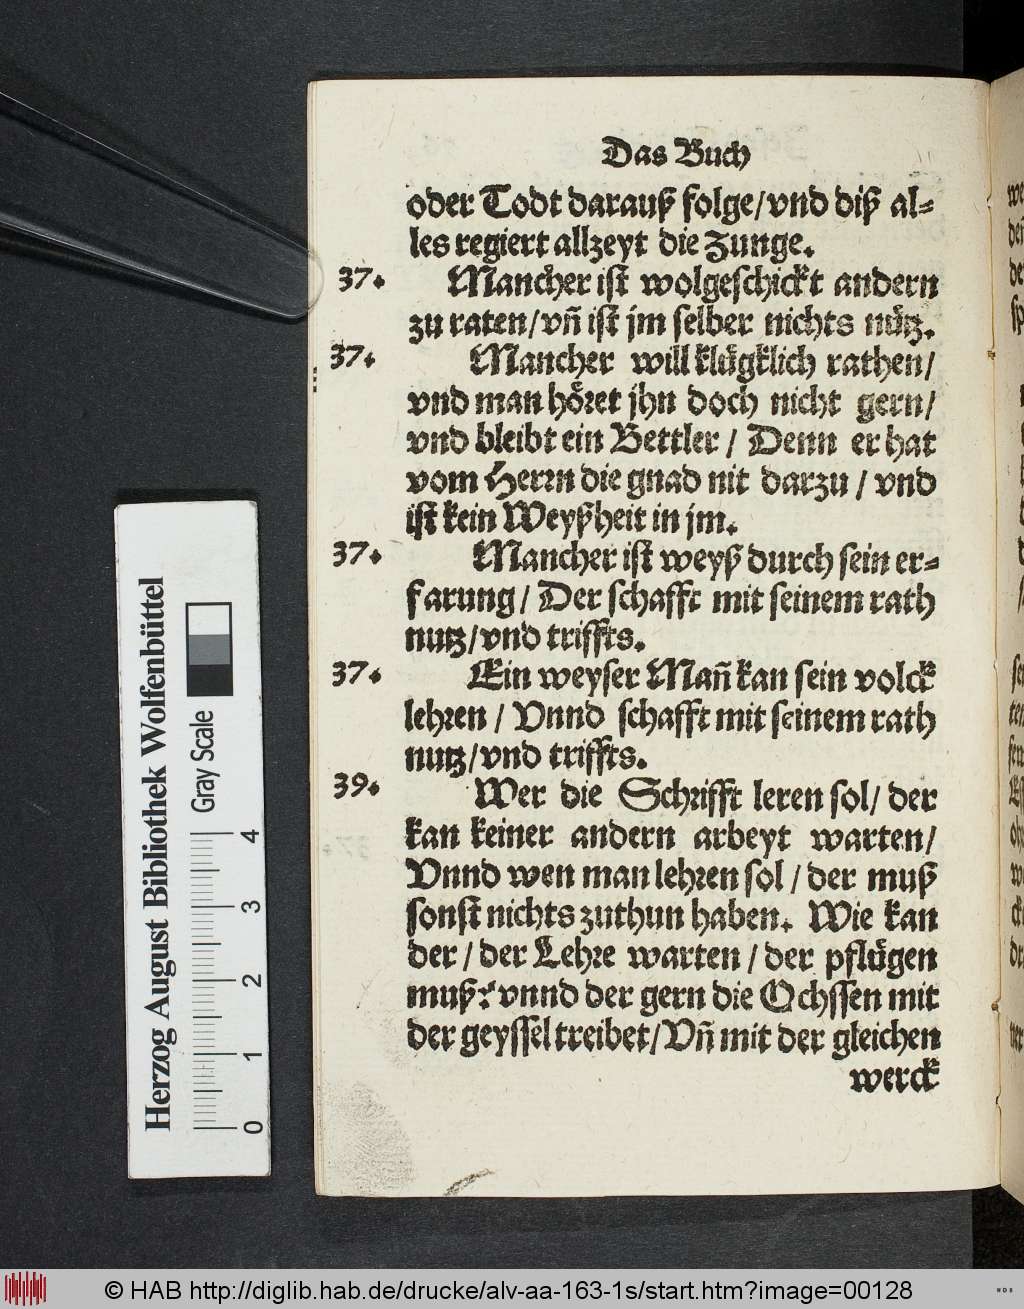 Das Buch
oder Todt darauß folge/vnd diß al=
les regiert allzeyt die Zunge.
37. Mancher ist wolgeschickt andern
zu raten/vñ ist jm selber nichts nütz.
37. Mancher will klůgklich rathen/
vnd man höret jhn doch nicht gern/
vnd bleibt ein Bettler / Denn er hat
vom Herrn die gnad nit darzu / vnd
ist kein Weyßheit in jm.
37. Mancher ist weyß durch sein er=
farung/ Der schafft mit seinem rath
nutz/vnd triffts.
37. Ein weyser Mañ kan sein volck
lehren / Vnnd schafft mit seinem rath
nutz/vnd triffts.
39. Wer die Schrifft leren sol/ der
kan keiner andern arbeyt warten/
Vnnd wen man lehren sol / der muß
sonst nichts zuthun haben. Wie kan
der / der Lehre warten / der pflügen
muß? vnnd der gern die Ochssen mit
der geyssel treibet/Vñ mit der gleichen
werck
Herzog August Bibliothek Wolfenbüttel
Gray Scale
0 1 2 3 4
© HAB http://diglib.hab.de/drucke/alv-aa-163-1s/start.htm?image=00128